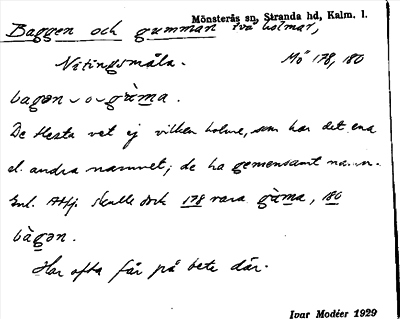 Mönsterås sn, Stranda hd, Kalm. l.
Baggen och gumman två holmar,
Nötingsmåla. Mö 178, 180
bagən ‿ o ‿ gùma.
De flesta vet ej vilken holme, som har det ena
el. andra namnet; de ha gemensamt namn.
Enl. Atpj. skulle dock 178 vara gùma, 180
bàgən.
Har ofta får på bete där.
Ivar Modéer 1929